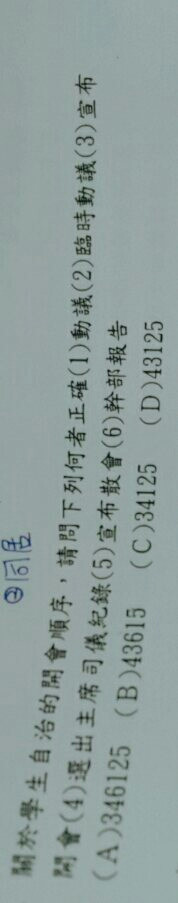 ②同居
關於學生自治的開會順序，請問下列何者正確(1)動議(2)臨時動議(3)宣布
開會(4)選出主席司儀紀錄(5)宣布散會(6)幹部報告
(A)346125 (B)43615 (C)34125 (D)43125